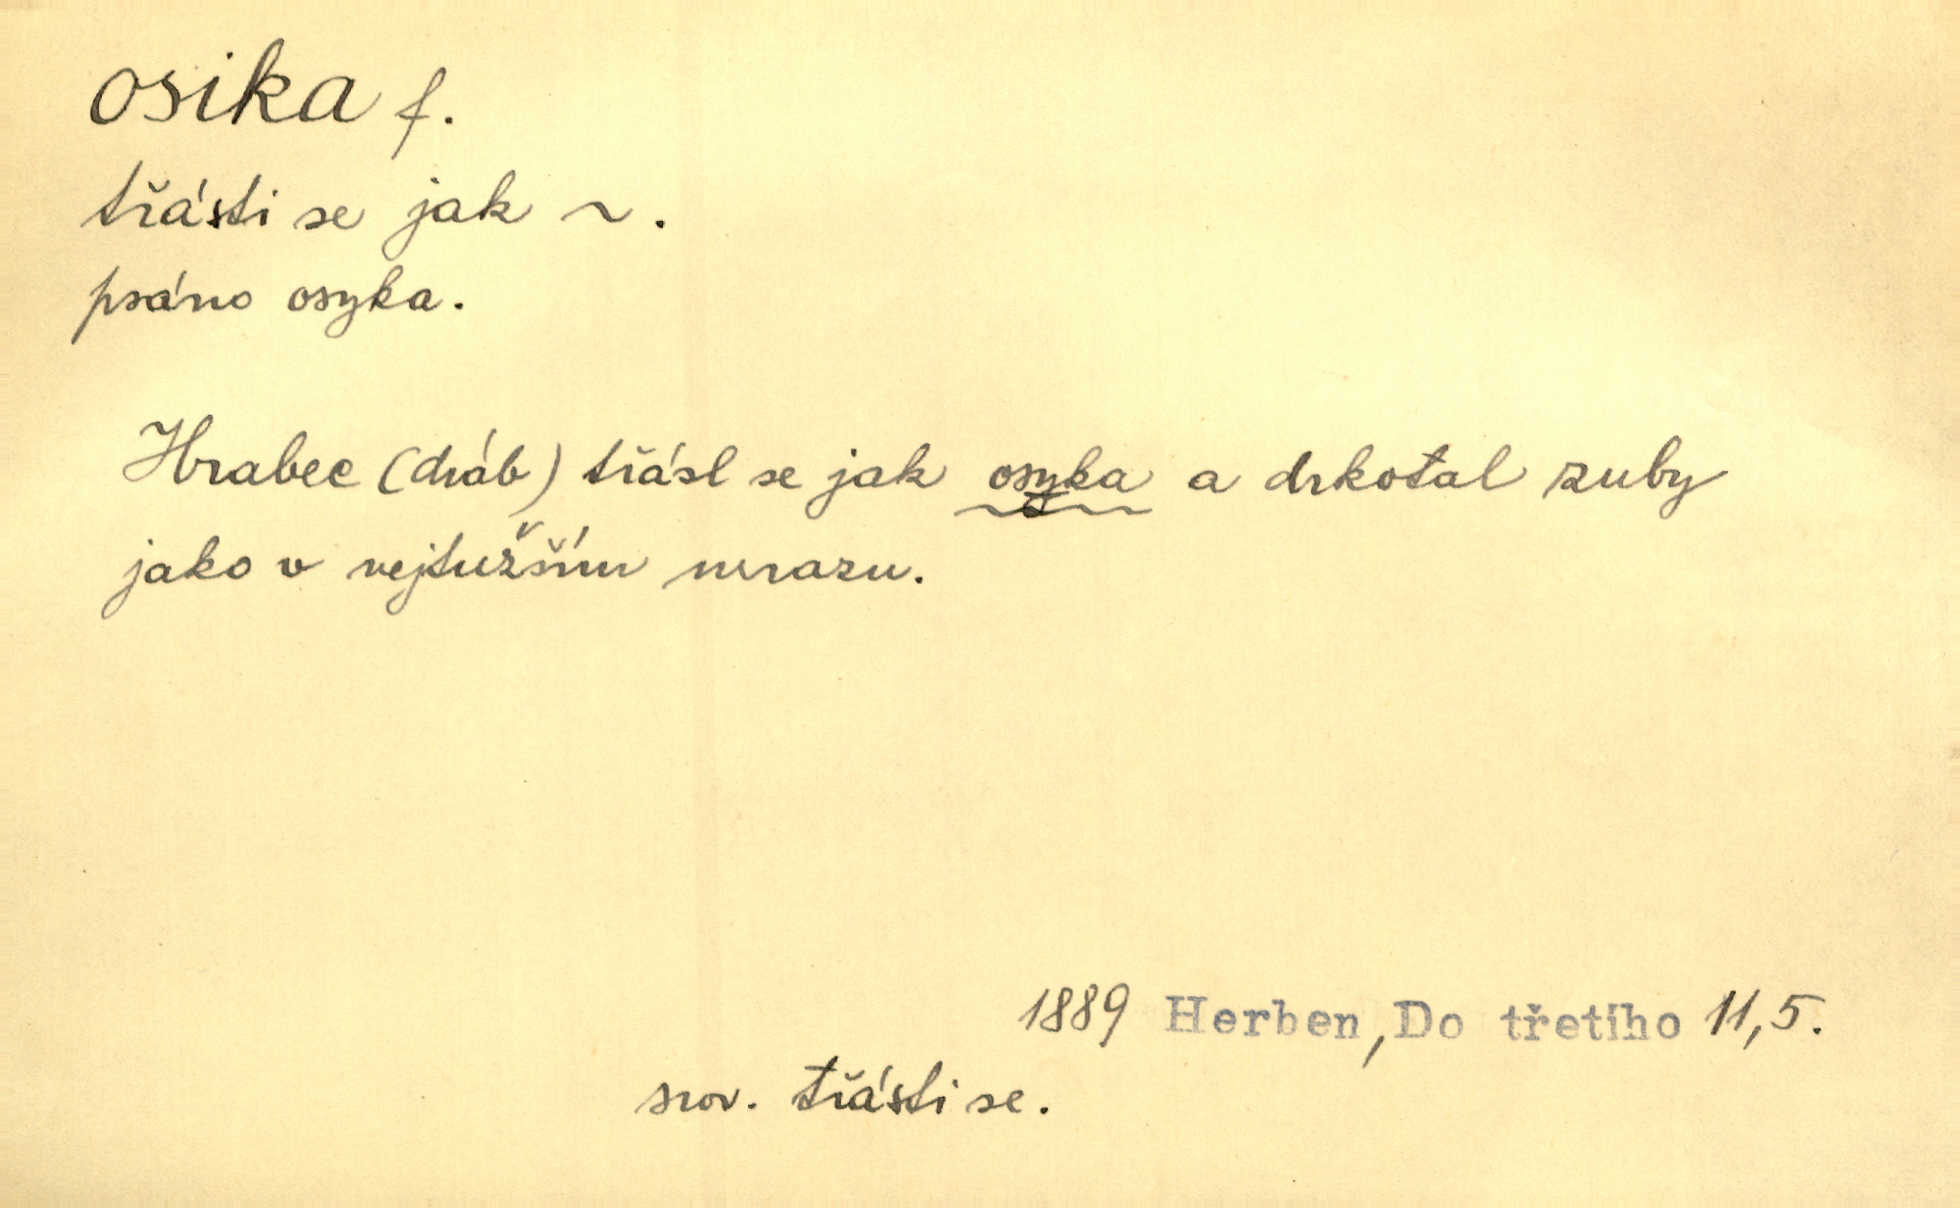 osika f.
třásti se jak ~.
psáno osyka.
Hrabec (dráb) třásl se jak osyka a drkotal zuby
jako v nejtužším mrazu.
1889 Herben, Do třetího 11,5.
srov. třásti se.